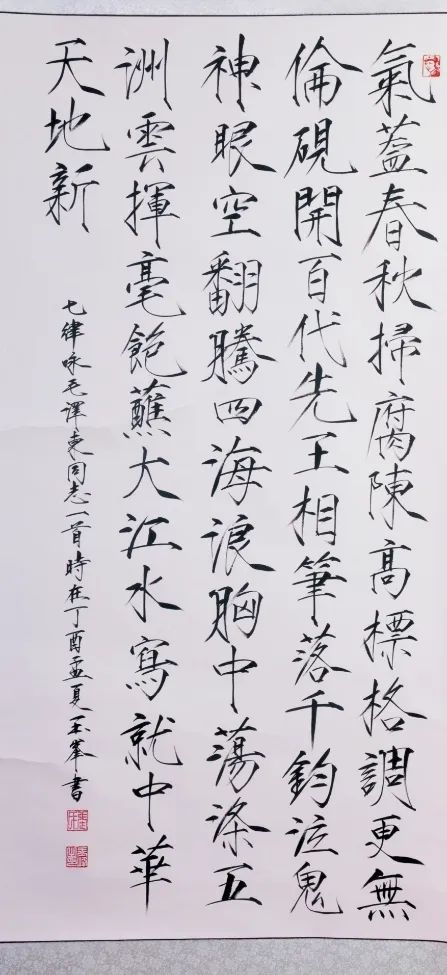 氣蓋春秋掃腐陳高標格調更無
倫硯開百代先王相筆落千鈞泣鬼
神眼空翻騰四海浪胸中蕩滌五
洲雲揮毫飽蘸大江水寫就中華
天地新
七律咏毛澤東同志一首時在丁酉孟夏玉峯書